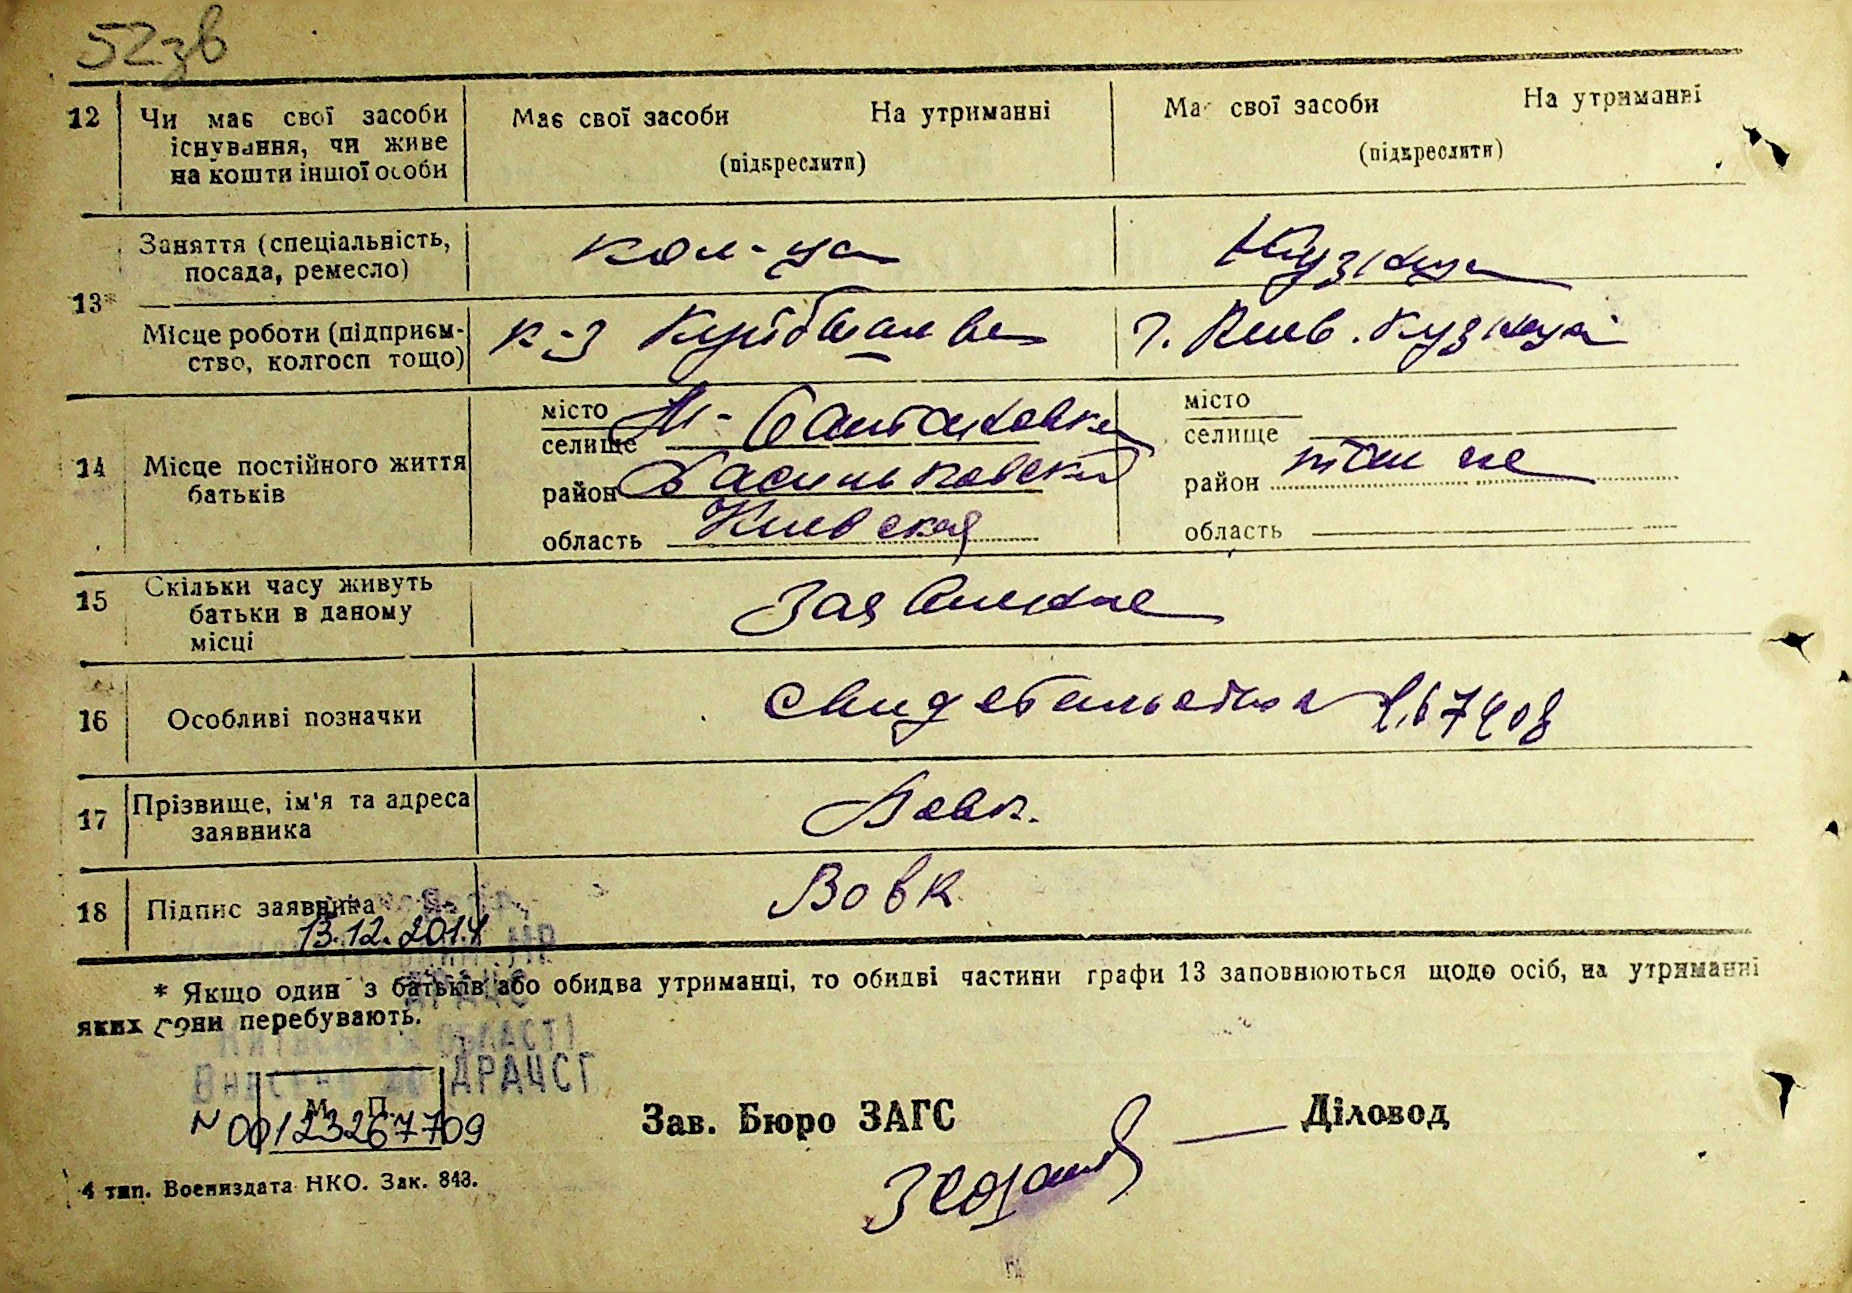 52зв
12 Чи має свої засоби існування, чи живе на кошти іншої особи
Має свої засоби На утриманні
(підкреслити)
Має свої засоби На утриманні
(підкреслити)
13*
Заняття (спеціальність, посада, ремесло)
кол-ца
Кузнец
Місце роботи (підприєм-
ство, колгосп тощо)
к-з Куйбышева
г. Киев. кузница
14 Місце постійного життя батьків
місто
селище М-
район Васильковский
область Киевская
місто
селище
район там же
область
15 Скільки часу живуть батьки в даному місці
16 Особливі позначки
Свидетельство
17 Прізвище, ім'я та адреса заявника
Вовк.
18 Підпис заявника
Вовк
13.12.2014
* Якщо один з батьків або обидва утриманці, то обидві частини графи 13 заповнюються щодо осіб, на утриманні
яких вони перебувають.
ОБЛАСТІ
Внесено до ДРАЦСГ
М. П.
N 00123267709
Зав. Бюро ЗАГС
Діловод
4 тип. Воениздата НКО. Зак. 843.